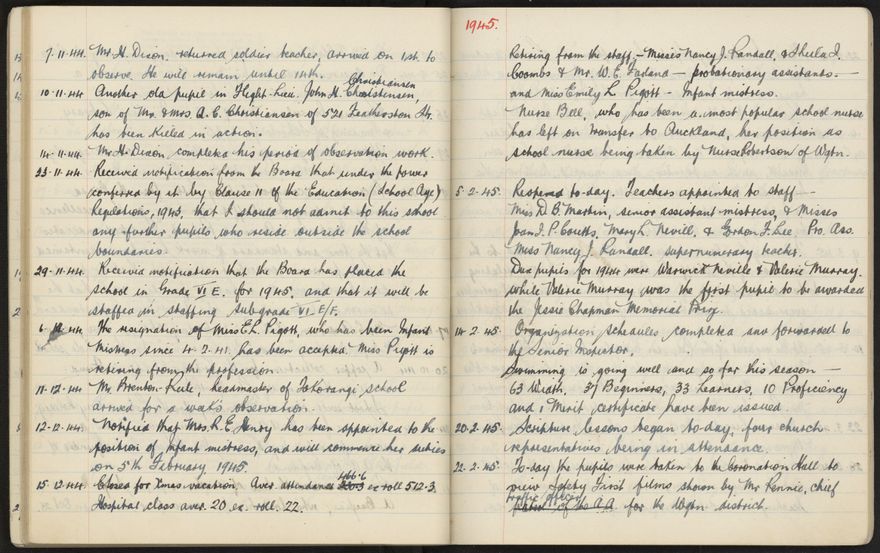 7.11.44. Mr. H. Dixon, returned soldier teacher, arrived on 1st. to
observe. He will remain until 14th.
Christiansen
10.11.44 Another old pupil in Flight-Lieu. John H. Christensen,
son of Mr. & Mrs. A. C. Christiansen of 521 Featherston St.
has been killed in action.
14.11.44. Mr. H. Dixon completed his period of observation work.
23.11.44. Received notification from the Board that under the power
conferred by it by Clause 11 of the Education (School Age)
Regulations, 1943, that I should not admit to this school
any further pupils who reside outside the school
boundaries.
29.11.44. Received notification that the Board has placed the
school in Grade VI E. for 1945. and that it will be
staffed in staffing subgrade VI. E/F.
6. 12.44. The resignation of Miss E. L. Pigott, who has been Infant
Mistress since 4.2.41. has been accepted. Miss Pigott is
retiring from the profession.
11.12.44 Mr. Brenton-Rule, headmaster of Tokorangi school
arrived for a week's observation.
12.12.44. Notified that Mrs. R. E. Henry has been appointed to the
position of infant mistress, and will commence her duties
on 5th February 1945.
466.6
15.12.44. Closed for Xmas vacation. Aver. attendance ex roll 512.3.
Hospital class aver. 20 ex. roll. 22.
1945.
Retiring from the staff – Misses Nancy J. Randall, & Sheila I.
Coombs & Mr. W. E. Farland – probationary assistants. –
and Miss Emily L. Pigott – Infant mistress.
Nurse Bell, who has been a most popular school nurse
has left on transfer to Auckland, her position as
school nurse being taken by Nurse Robertson of Wgtn.
5.2.45. Reopened to-day. Teachers appointed to staff –
Miss D. B. Martin, senior assistant mistress, & Misses
Joan I. P. Coutts, Mary L. Nevill, & Gordon F. Lee. Pro. Ass.
Miss Nancy J. Randall. supernumerary teacher.
Dux pupils for 1944 were Warwick Neville & Valerie Murray.
while Valerie Murray was the first pupil to be awarded
the Jessie Chapman Memorial Prize.
14.2.45. Organization schedules completed and forwarded to
the Senior Inspector.
Swimming is going well and so far this season –
63 Width. 37 Beginners, 33 Learners, 10 Proficiency
and 1 Merit certificate have been issued.
20.2.45. Scripture lessons began to-day, four church
representatives being in attendance.
22.2.45. To-day the pupils were taken to the Coronation Hall to
view Safety First films shown by Mr Rennie, chief
traffic officer
of the A.A. for the Wgtn district.